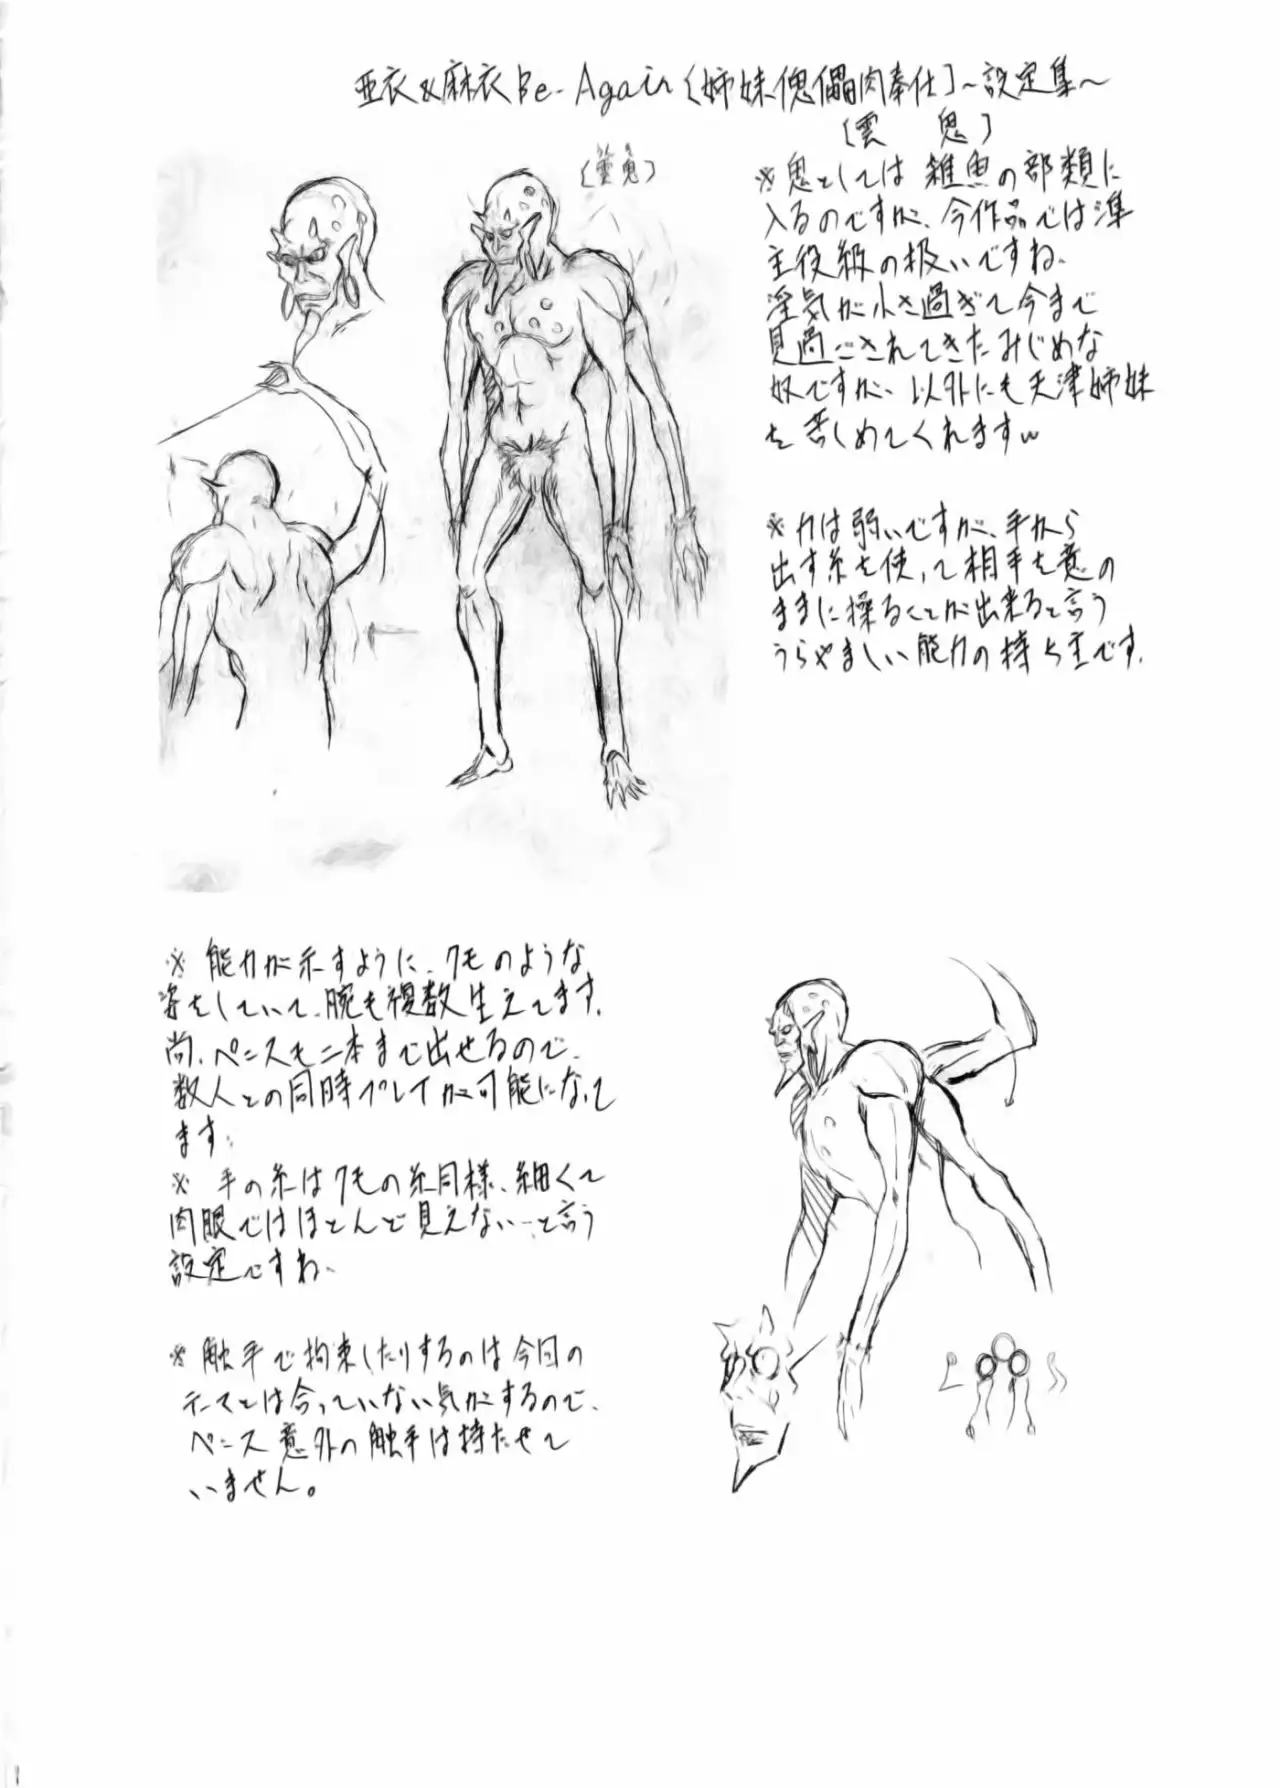 亜衣&麻衣 Be-Again〔姉妹傀儡肉奉仕〕~設定集~
〔雲 鬼〕
※鬼としては雑魚の部類に
入るのですが、今作品では準
主役級の扱いですね、
淫気が小さ過ぎて今まで
見過ごされてきたみじめな
奴ですが、以外にも天津姉妹
を苦しめてくれますw
※力は弱いですが、手から
出す糸を使って相手を意の
ままに操ることが出来ると言う
うらやましい能力の持ち主です.
※能力が示すように、クモのような
姿をしていて、腕も複数生えてます.
尚、ペニスも二本まで出せるので、
数人との同時プレイが可能になって
ます.
※手の糸はクモの糸同様、細くて
肉眼ではほとんど見えない…と言う
設定ですね、
※触手で拘束したりするのは今回の
テーマとは合っていない気がするので、
ペニス意外の触手は持たせて
いません。